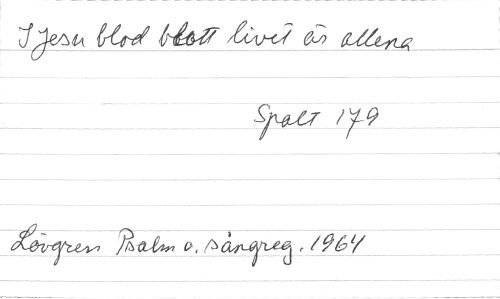 I Jesu blod blott livet är allena
Spalt 179
Lövgren Psalm o. sångreg. 1964